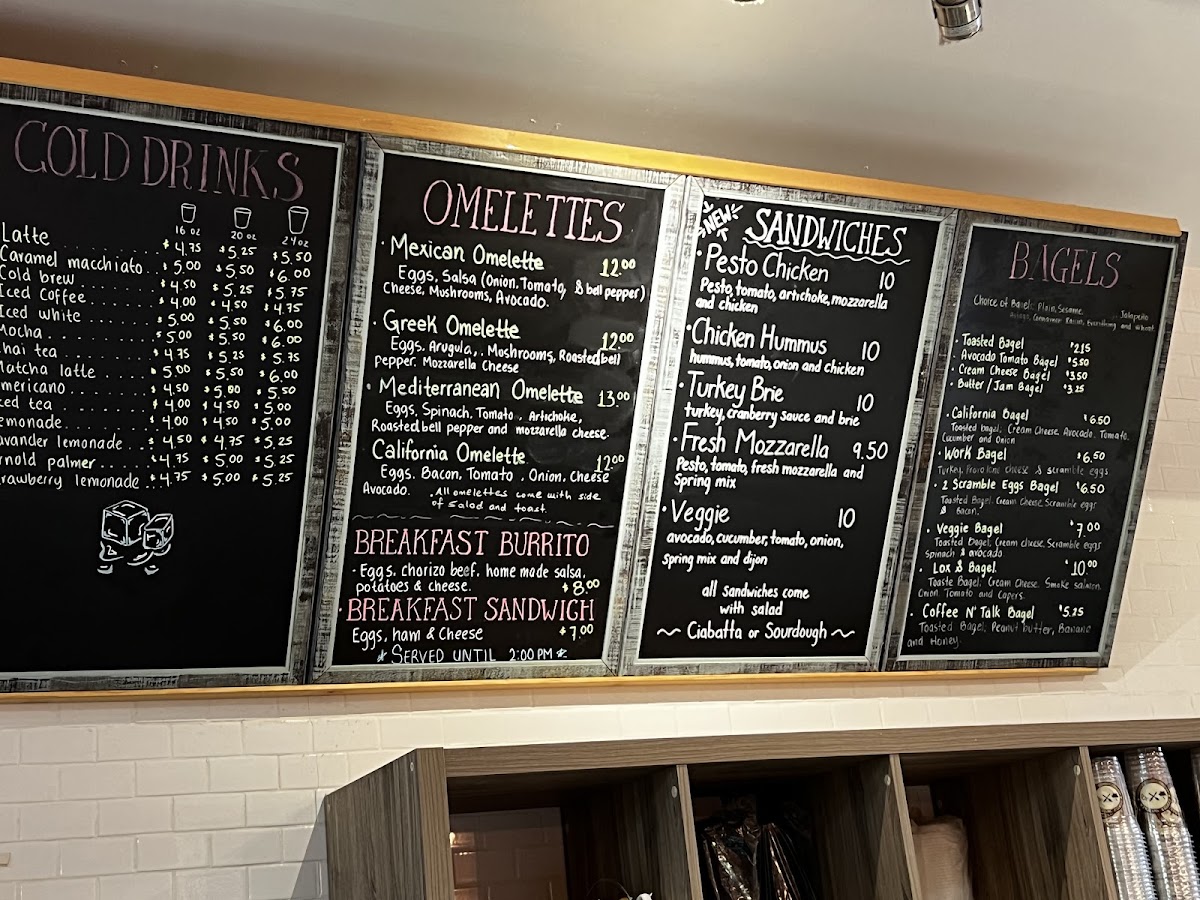 COLD DRINKS
16 oz 20 oz 24 oz
Latte $4.75 $5.25 $5.50
Caramel macchiato.. $5.00 $5.50 $6.00
Cold brew ....... $4.50 $5.25 $5.75
Iced Coffee ....... $4.00 $4.50 $4.75
Iced white ........ $5.00 $5.50 $6.00
Mocha ........ $5.00 $5.50 $6.00
hai tea ........ $4.75 $5.25 $5.75
Matcha latte ..... $5.00 $5.50 $6.00
mericano ....... $4.50 $5.00 $5.50
ced tea ....... $4.00 $4.50 $5.00
emonade ....... $4.00 $4.50 $5.00
avander lemonade.. $4.50 $4.75 $5.25
rnold palmer... $4.75 $5.00 $5.25
rawberry lemonade... $4.75 $5.00 $5.25
OMELETTES
· Mexican Omelette 12.00
Eggs, Salsa (Onion, Tomato, & bell pepper)
Cheese, Mushrooms, Avocado.
· Greek Omelette 12.00
Eggs. Arugula,. Mushrooms, Roasted bell
pepper. Mozzarella Cheese
· Mediterranean Omelette 13.00
Eggs. Spinach. Tomato, Artichoke,
Roasted bell pepper and mozzarella cheese.
· California Omelette 12.00
Eggs. Bacon. Tomato, Onion, Cheese
Avocado. . All omelettes come with side
of salad and toast.
BREAKFAST BURRITO
· Eggs. chorizo beef. home made salsa,
potatoes & cheese. $8.00
· BREAKFAST SANDWICH
Eggs, ham & Cheese $7.00
* SERVED UNTIL 2:00 PM *
NEW
SANDWICHES
· Pesto Chicken 10
Pesto, tomato, artichoke, mozzarella
and chicken
· Chicken Hummus 10
hummus, tomato, onion and chicken
· Turkey Brie 10
turkey, cranberry sauce and brie
· Fresh Mozzarella 9.50
Pesto, tomato, fresh mozzarella and
Spring mix
· Veggie 10
avocado, cucumber, tomato, onion,
spring mix and dijon
all sandwiches come
with salad
~ Ciabatta or Sourdough ~
BAGELS
Choice of Bagel: Plain, Sesame Jalapeño
Asiago, Cinnamon Raisin, Everything and Wheat
· Toasted Bagel $2.15
· Avocado Tomato Bagel $5.50
· Cream Cheese Bagel $3.50
· Butter / Jam Bagel $3.25
· California Bagel $6.50
Toasted bagel, Cream Cheese, Avocado, Tomato.
Cucumber and Onion
· Work Bagel $6.50
Turkey, Provolone cheese & scramble eggs
· 2 Scramble Eggs Bagel $6.50
Toasted Bagel, Cream Cheese Scramble eggs
& Bacon.
· Veggie Bagel $7.00
Toasted Bagel, Cream cheese, Scramble eggs
Spinach & avocado
· Lox & Bagel $10.00
Toaste Bagel, Cream Cheese. Smoke salmon.
Onion, Tomato and Capers.
· Coffee N' Talk Bagel $5.25
Toasted Bagel, Peanut butter, Banana
and Honey.